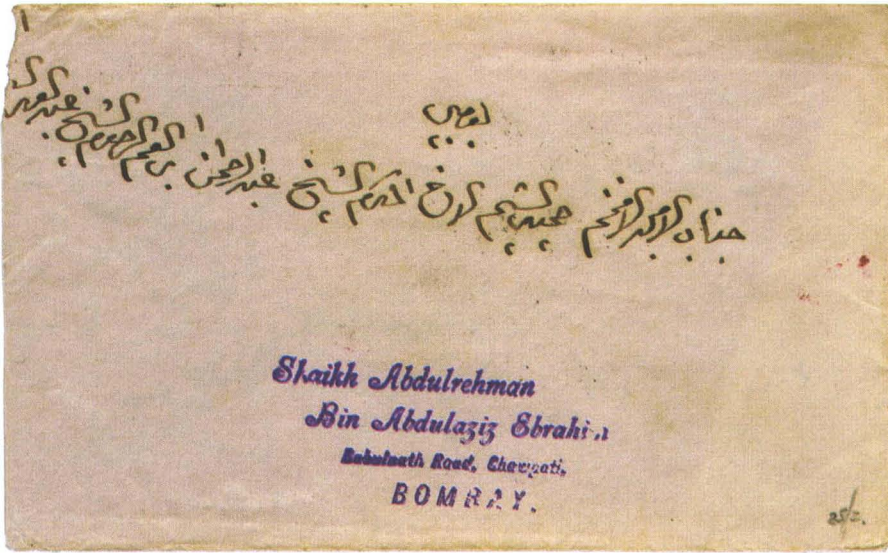 لبومبي
جناب الامجد الافخم حميد الشيم الاخ المكرم الشيخ عبدالرحمن ابن العم المرحوم الشيخ عبدالعزيز
Shaikh Abdulrehman
Bin Abdulaziz Ebrahim
Babulnath Road, Chaupati,
BOMBAY.